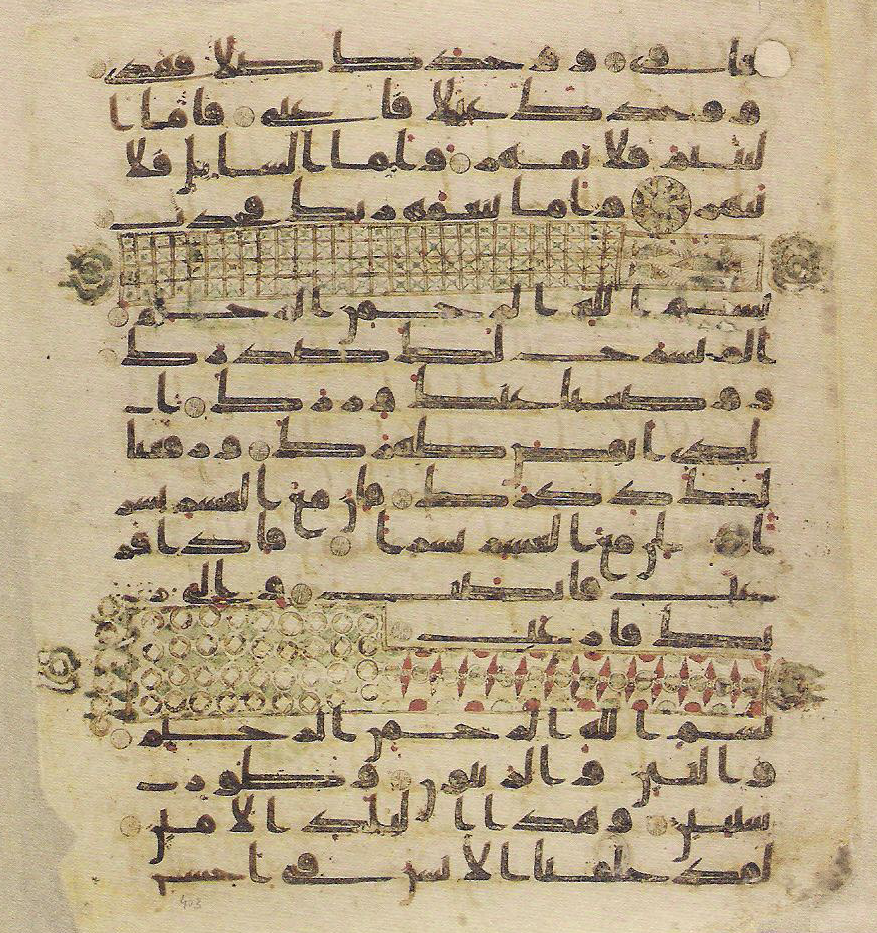 فاوى ووجدك ضالا فهدى
ووجدك عىلا فاغنى فاما ا
ليتيم فلا تقهر واما السايل فلا
تنهر واما بنعمة ربك فحدث
بسم الله الرحمن الرحيم
الم نشرح لك صدرك
ووضعنا عنك وزرك ا
لذى انقض ظهرك ورفعنا
لك ذكرك فان مع العسر يسر
ا ان مع العسر يسرا فاذا فر
غت فانصب والى ر
بك فارغب
بسم الله الرحمن الرحيم
والتين والزيتون وطور
سينين وهذا البلد الامين
لقد خلقنا الانسن فى احسن
403